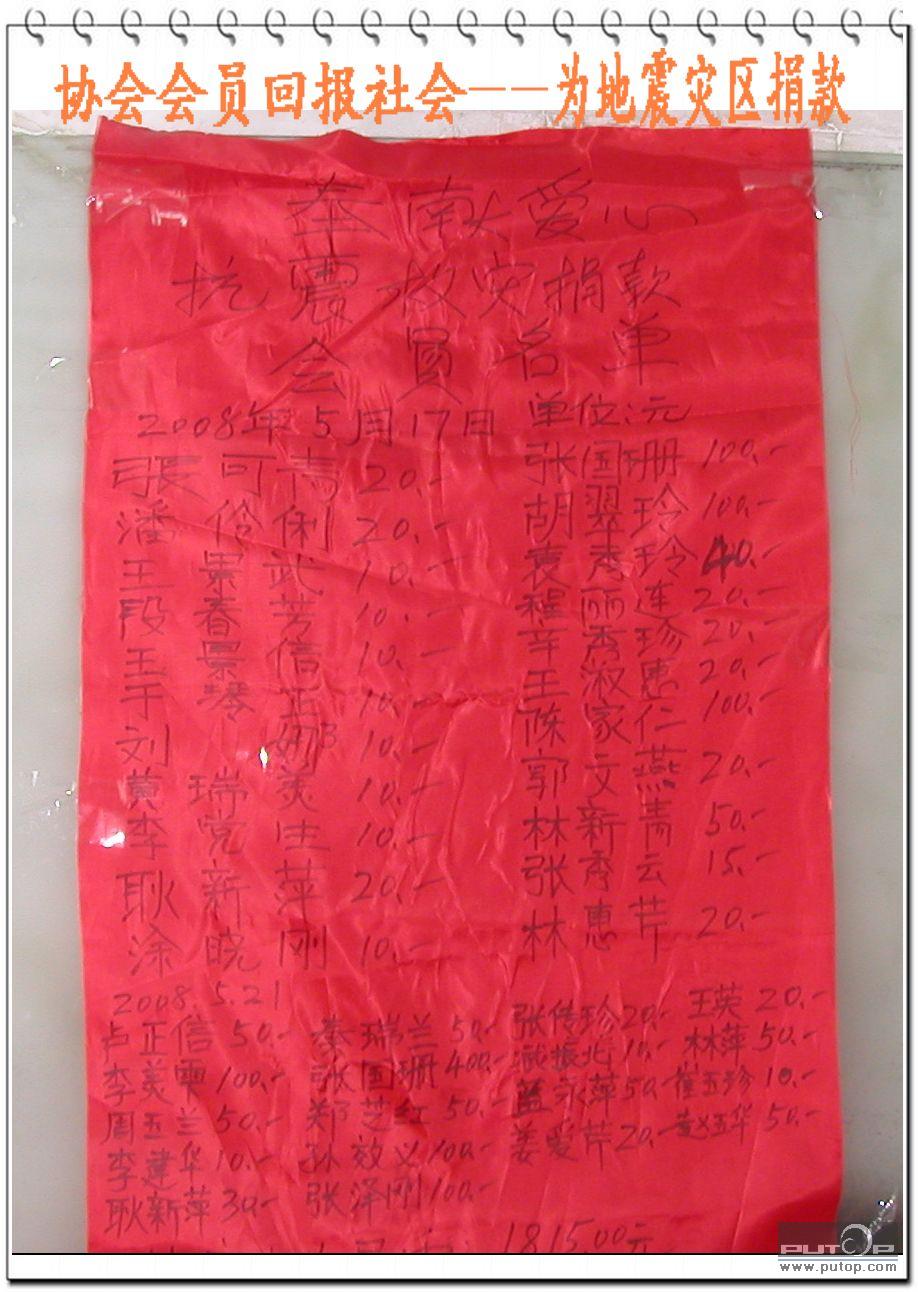 协会会员回报社会---为地震灾区捐款
奉献爱心
抗震救灾捐款
会员名单
2008年5月17日 单位:元
張可高 20.- 张国珊 100.-
潘伶俐 20.- 胡翠玲 100.-
王景武 10.- 袁秀玲 40.-
段春芳 10.- 程丽莲 20.-
王景信 10.- 辛秀珍 20.-
于琴正 10.- 王淑惠 20.-
刘娜 10.- 陈家仁 100.-
黄瑞美 10.- 郭文燕 20.-
李党生 10.- 林新青 50.-
耿新萍 20.- 张秀云 15.-
涂晓刚 10.- 林惠芹 20.-
2008.5.21
卢正信 50.- 秦瑞兰 50.- 张传珍 20.- 王英 20.-
李美雯 100.- 张国珊 400.- 臧振北 10.- 林萍 50.-
周玉兰 50.- 郑芝红 50.- 蓝永萍 50.- 崔玉珍 10.-
李建华 10.- 孙效义 100.- 姜爱芹 20.- 赵玉华 50.-
耿新萍 30.- 张泽刚 100.-
1815.00元
PUTOP
www.putop.com